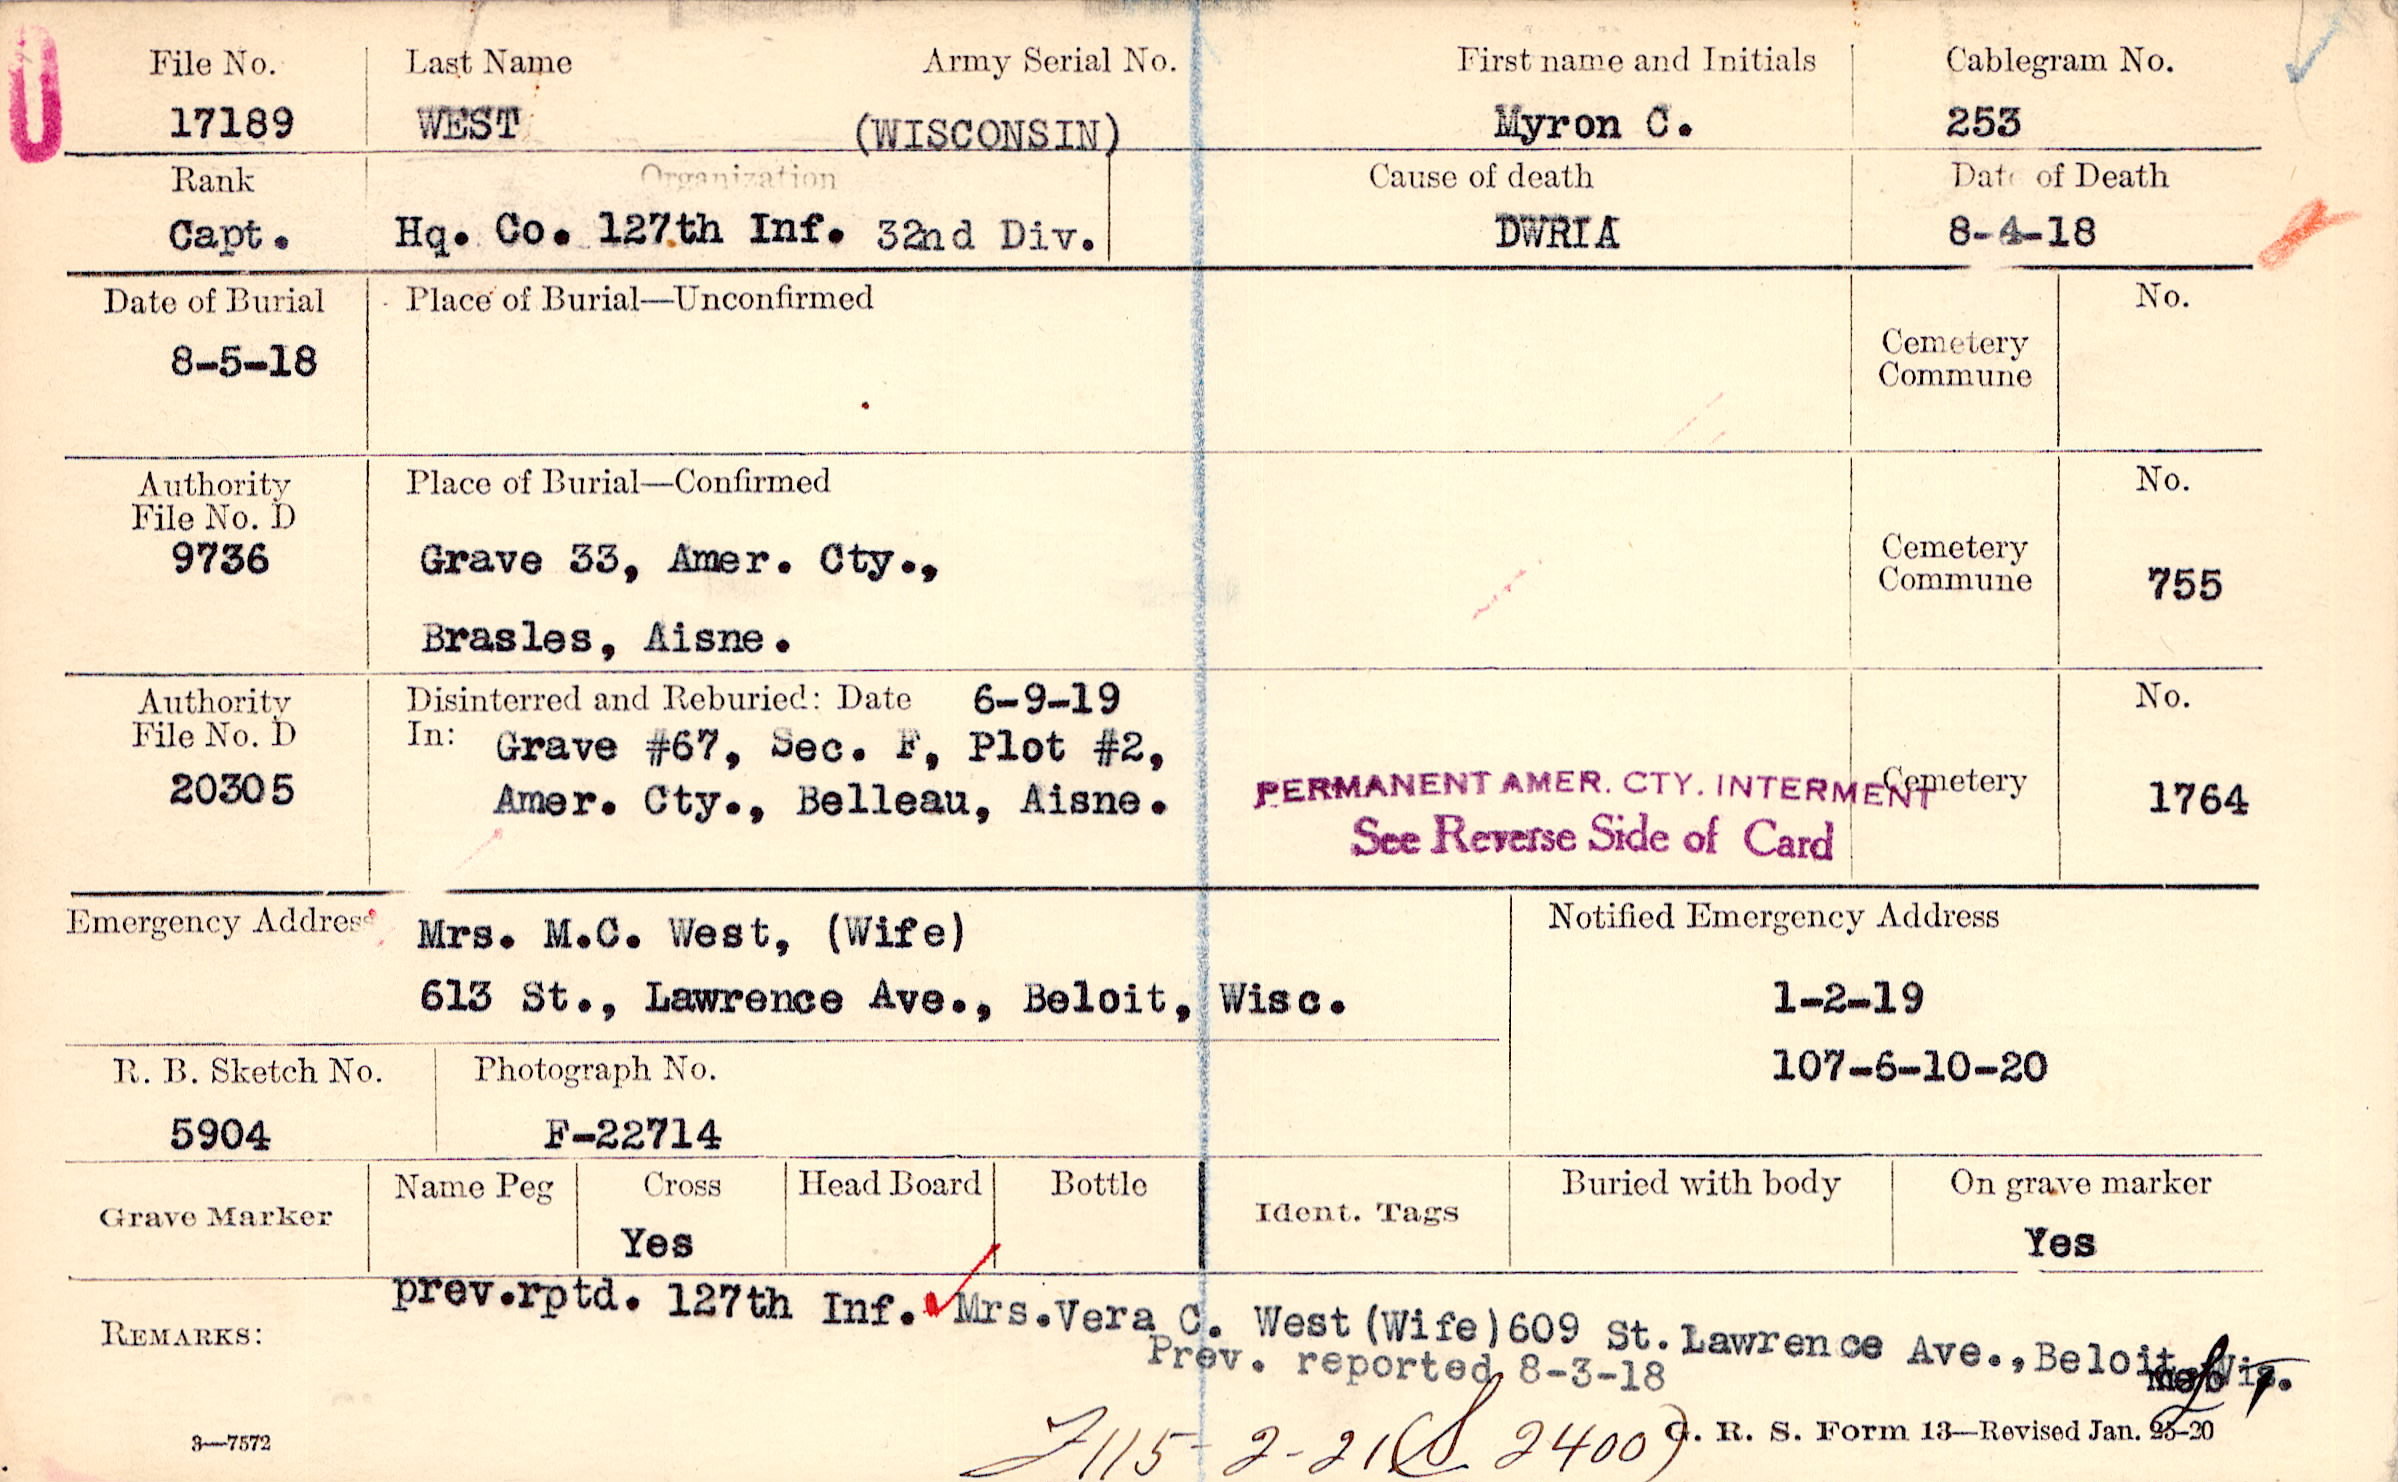 File No. Last Name Army Serial No. First name and Initials Cablegram No.
17189 WEST (WISCONSIN) Myron C. 253
Rank Organization Cause of death Date of Death
Capt. Hq. Co. 127th Inf. 32nd Div. DWRIA 8-4-18
Date of Burial Place of Burial—Unconfirmed No.
8-5-18
Cemetery
Commune
Authority Place of Burial—Confirmed No.
File No. D
9736 Grave 33, Amer. Cty.,
Cemetery
Commune 755
Brasles, Aisne.
Authority Disinterred and Reburied: Date 6-9-19 No.
File No. D In: Grave #67, Sec. F, Plot #2,
20305 Amer. Cty., Belleau, Aisne. PERMANENT AMER. CTY. INTERMENT Cemetery 1764
See Reverse Side of Card
Emergency Address Mrs. M.C. West, (Wife) Notified Emergency Address
613 St., Lawrence Ave., Beloit, Wisc. 1-2-19
107-6-10-20
R. B. Sketch No. Photograph No.
5904 F-22714
Grave Marker Name Peg Cross Head Board Bottle Ident. Tags Buried with body On grave marker
Yes Yes
REMARKS: prev.rptd. 127th Inf. Mrs.Vera C. West (Wife) 609 St. Lawrence Ave., Beloit, Wis.
Prev. reported 8-3-18
115-2-21 ( 2400)
3—7572 G. R. S. Form 13—Revised Jan. 25-20